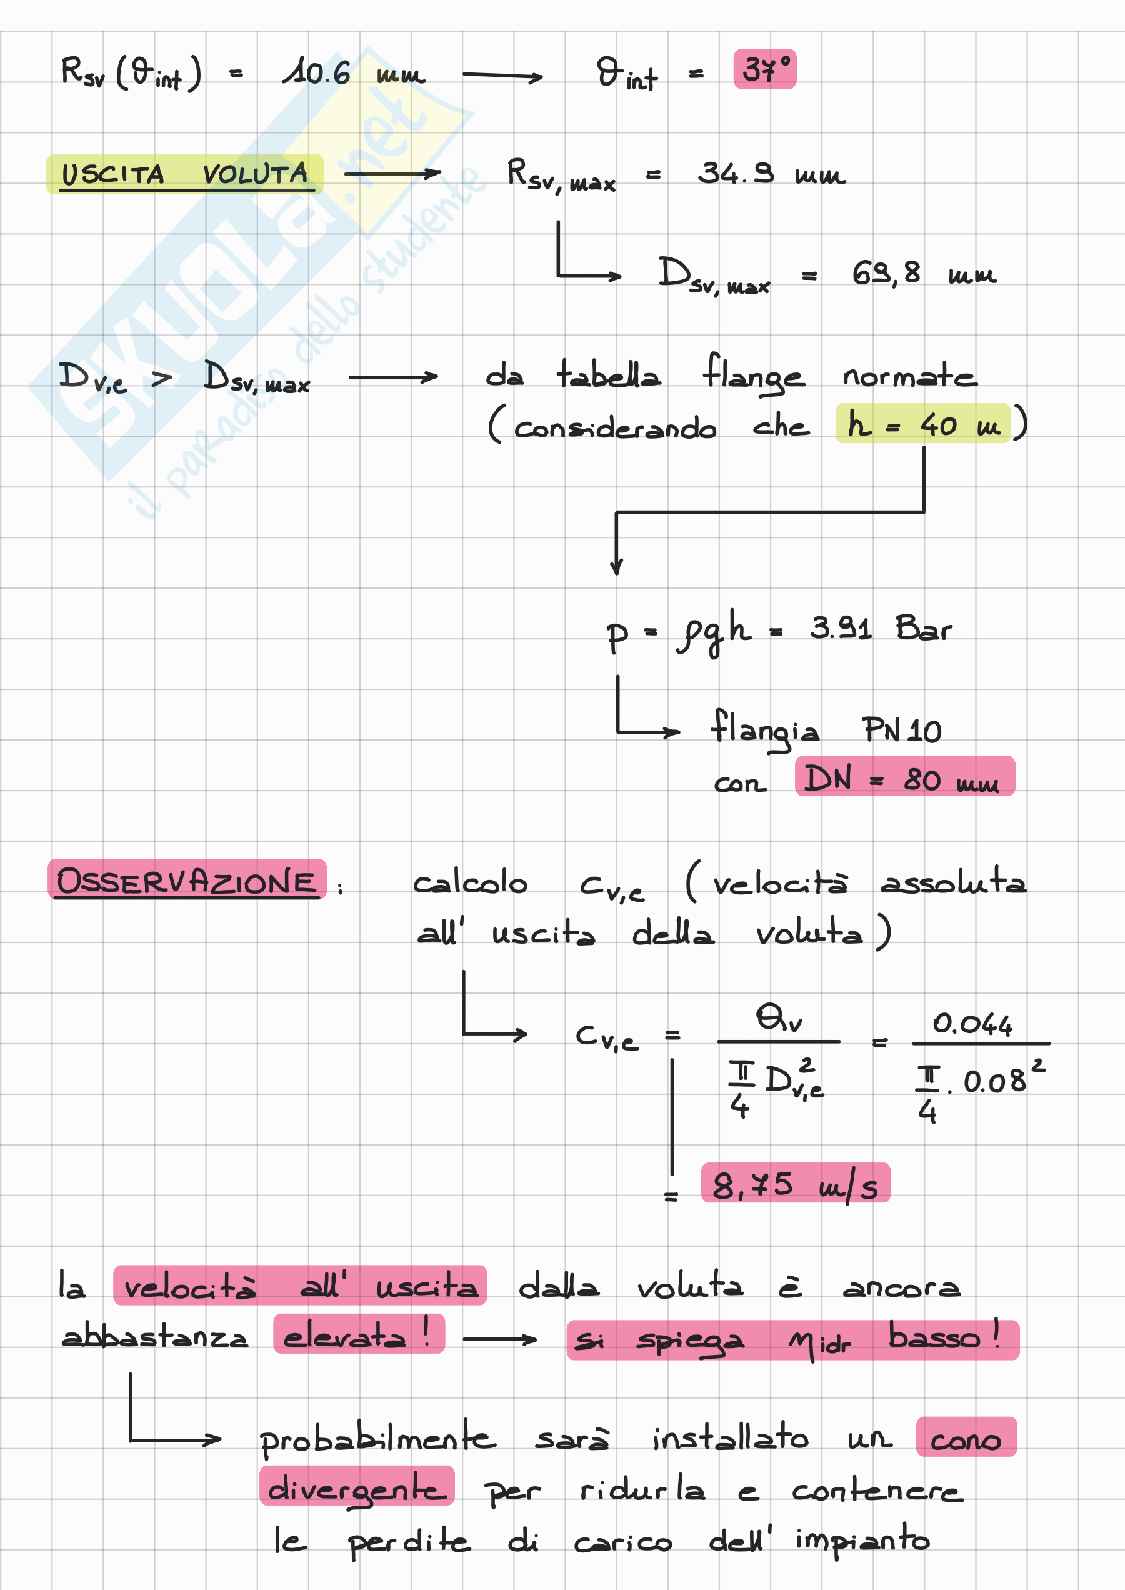 Rsv (ϑint) = 10.6 mm → ϑint = 37°
USCITA VOLUTA → Rsv, max = 34.9 mm
Dsv, max = 69,8 mm
Dv,e > Dsv, max → da tabella flange normate
(considerando che h = 40 m)
p = ρgh = 3.91 Bar
flangia PN10
con DN = 80 mm
OSSERVAZIONE: calcolo cv,e (velocità assoluta
all' uscita della voluta)
cv,e = Qv / (π/4 Dv,e²) = 0.044 / (π/4 · 0.08²)
= 8,75 m/s
la velocità all' uscita dalla voluta è ancora
abbastanza elevata! → si spiega ηidr basso!
probabilmente sarà installato un cono
divergente per ridurla e contenere
le perdite di carico dell' impianto
SKUOLa.net
il paradiso dello studente